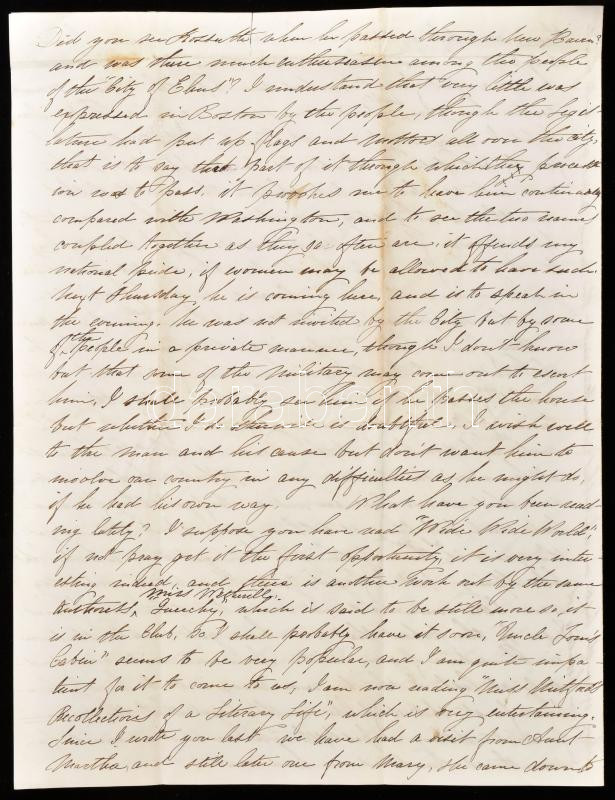 Did you see Kossuth when he passed through New Haven?
and was there much enthusiasm among the people
of the "City of Elms"? I understand that very little was
expressed in Boston by the people, though the Legis-
lature had put up flags and mottoes all over the city,
that is to say that part of it through which the process-
ion was to pass. it provokes me to have him continually
compared with Washington, and to see the two names
coupled together as they so often are, it offends my
national pride, if women may be allowed to have such.
Next Thursday, he is coming here, and is to speak in
the evening. he was not invited by the City but by some
of the people in a private manner, though I don't know
but that some of the Military may come out to escort
him, I shall probably see him if he passes the house
but whether I do otherwise is doubtful. I wish well
to the man and his cause but don't want him to
involve our country in any difficulties as he might do,
if he had his own way. What have you been read-
ing lately? I suppose you have read "Wide Wide World",
if not pray get it the first opportunity, it is very inte-
esting indeed, and there is another work out by the same
Authoress, Miss Wetherell, "Queechy," which is said to be still more so, it
is in the Club, so I shall probably have it soon, "Uncle Tom's
Cabin" seems to be very popular, and I am quite impa-
tient for it to come to us, I am now reading "Miss Mitford's
Recollections of a Literary Life", which is very entertaining.
Since I wrote you last we have had a visit from Aunt
Martha, and still later one from Mary, she came down to
darabanth